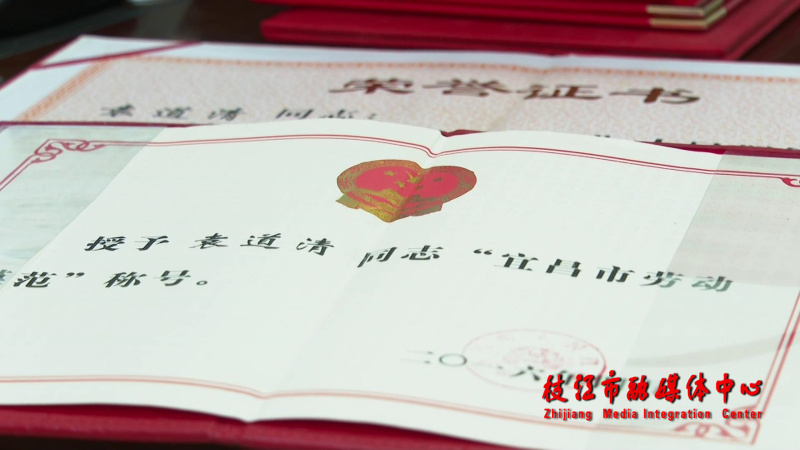 荣誉证书
袁道清 同志：
授予 袁道清 同志“宜昌市劳动
范”称号。
二〇一六年
枝江市融媒体中心
Zhijiang Media Integration Center